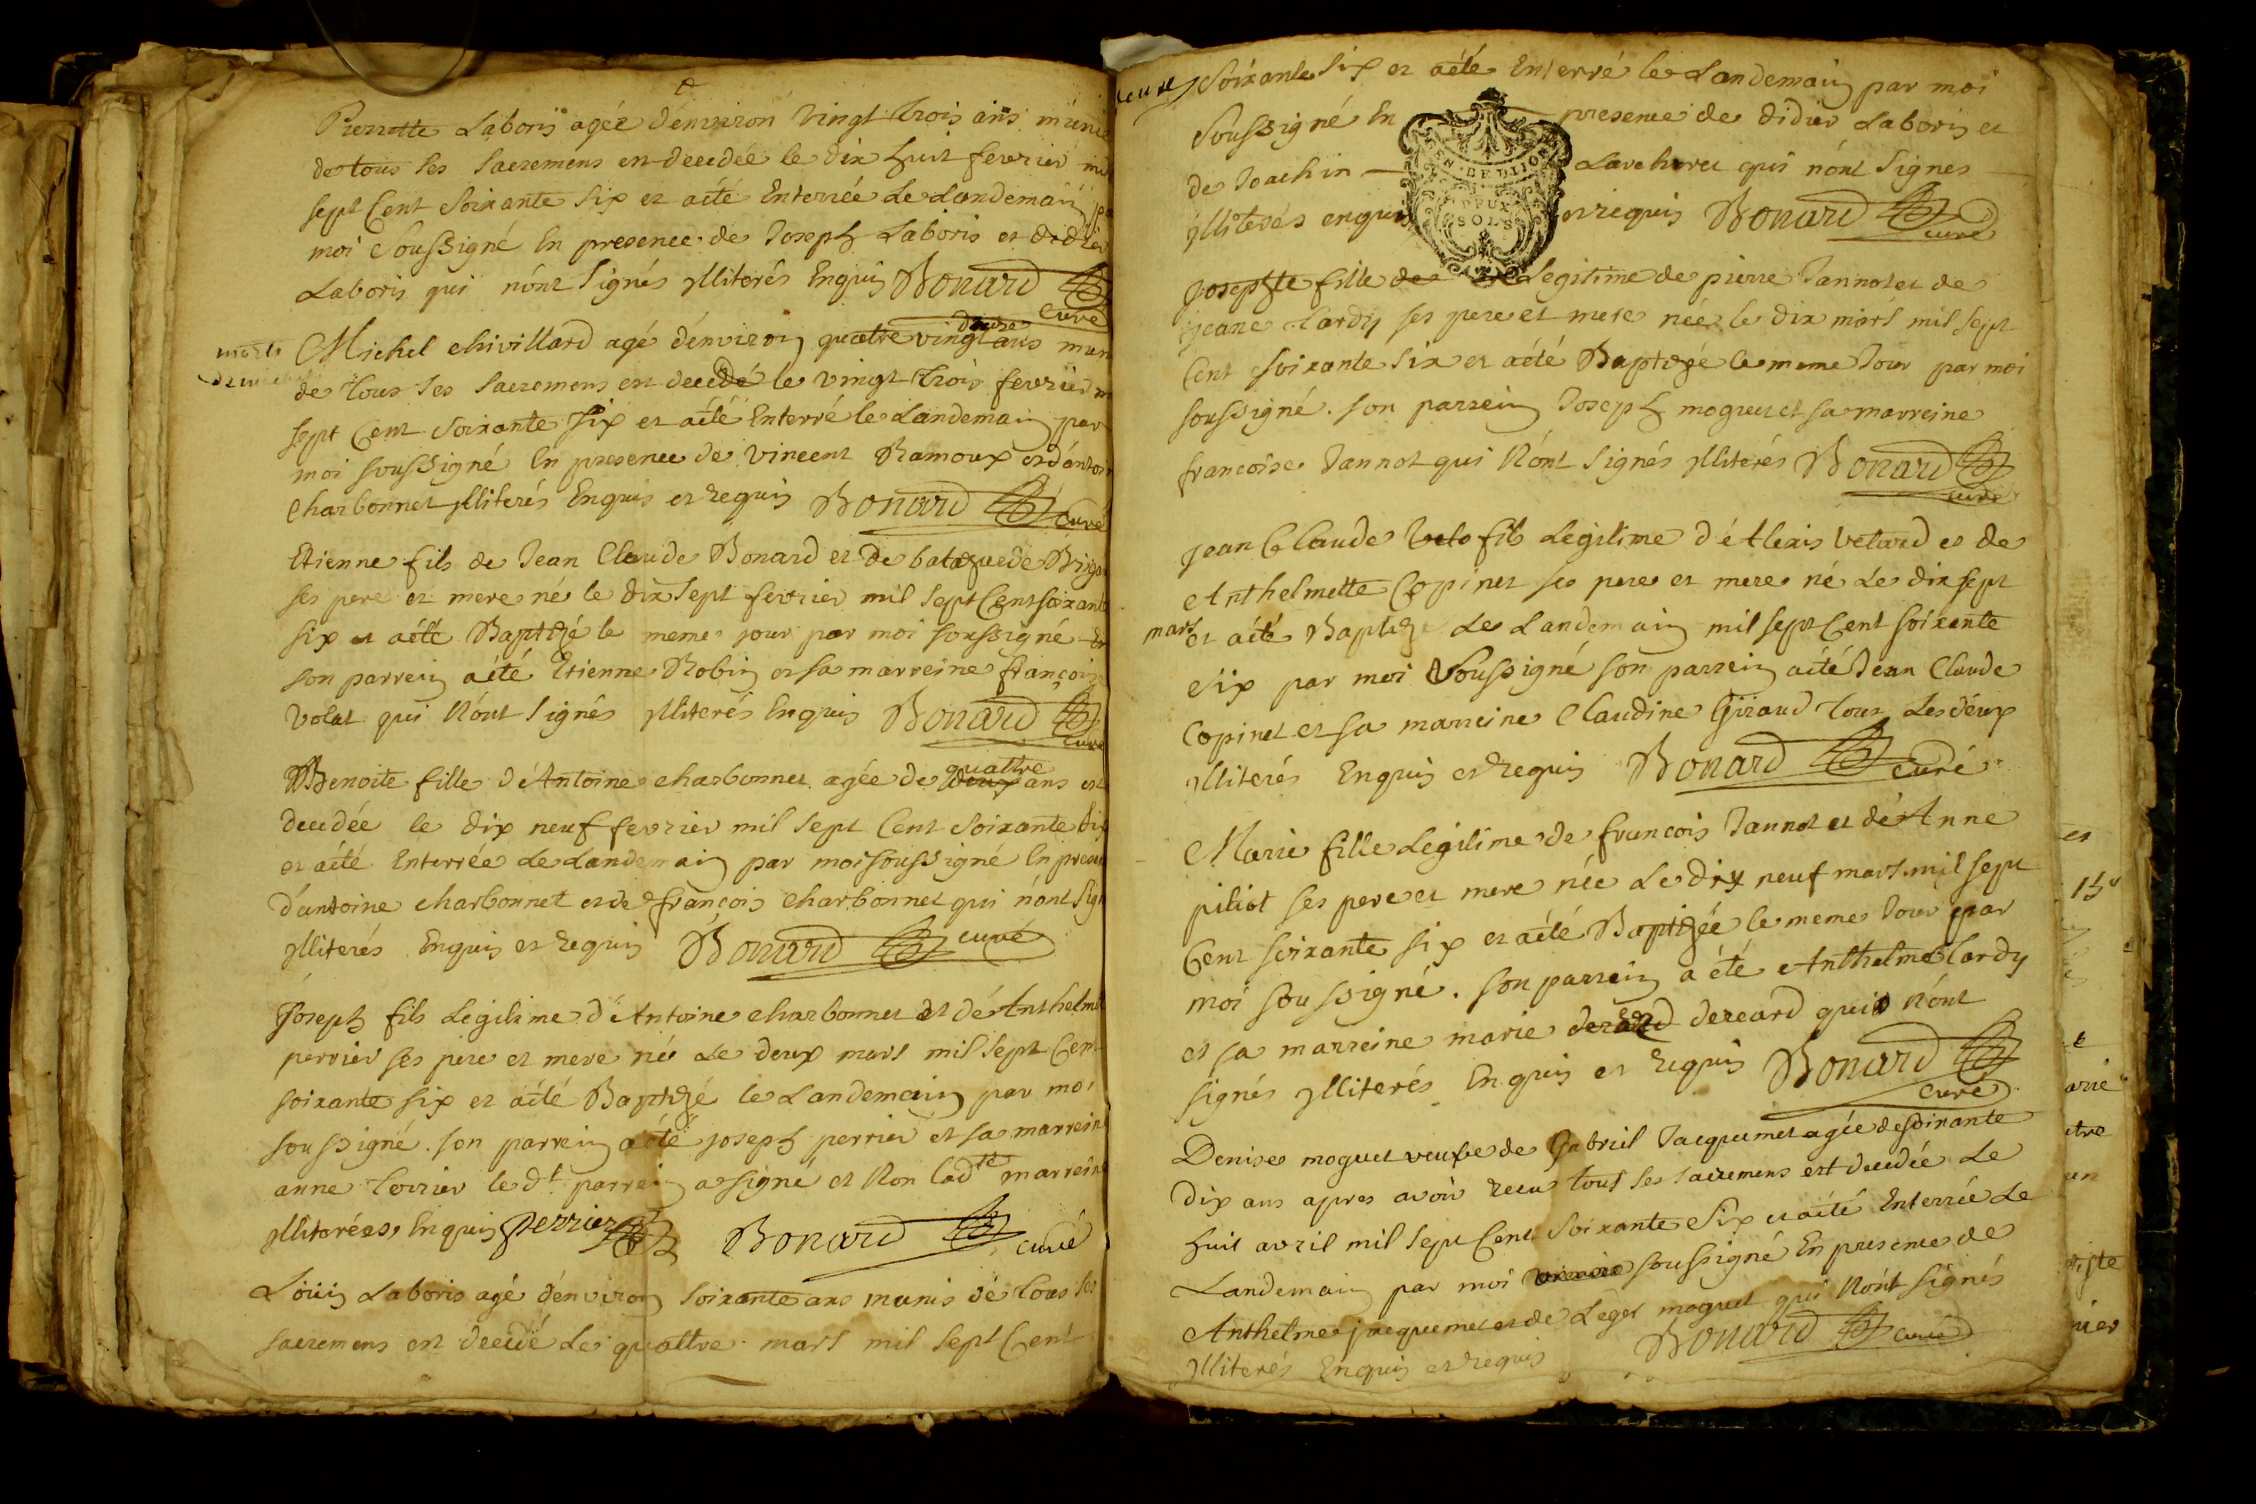 Pierrette Laboris agée d'environ vingt trois ans munie
de tous ses sacremens est decedée le dix huit fevrier
sept Cent soixante six et aété Enterrée Le Landemain
moi soussigné En presence de Joseph Laboris et didier
Laboris qui n'ont signés ylliterés Enquis Bonard
curé
Michel chivillard agé d'environ quatre vingt douze ans
de tous ses sacremens est decedé le vingt trois fevrier
sept Cent soixante six et aété Enterré le Landemain par
moi soussigné En presence de vincent Ramoux
Charbonnet ylliterés Enquis et requis Bonard curé
Etienne fils de Jean Claude Bonard et De
ses pere et mere né le dix sept fevrier mil sept Cent soixante
six et aété Baptizé le meme jour par moi soussigné
son parrein aété Etienne Robin et sa marreine françoise
volat qui N'ont signés ylliterés Enquis Bonard
curé
Benoite fille d'Antoine charbonnet agée de quattre ans est
decedée le dix neuf fevrier mil sept Cent soixante six
et aété Enterrée Le Landemain par moi soussigné En
d'antoine charbonnet et de françois charbonnet qui n'ont
ylliterés Enquis et requis Bonard curé
Joseph fils Legitime d'Antoine charbonnet et d'Anthelme
perrier ses pere et mere né Le deux mars mil sept Cent
soixante six et aété Baptizé le Landemain par moi
soussigné. son parrein aété joseph perrier et sa marreine
anne le dt. parrein a signé et Non lad.te marreine
ylliterées Enquis perrier Bonard curé
Loüis Laboris agé d'environ soixante ans munis de tous ses
sacremens est decedé Le quattre mars mil sept Cent
soixante six et aété Enterré le Landemain par moi
soussigné En presence de didier Laboris et
de Joachin Lavehvret qui n'ont signes
ylliterés enquis et requis Bonard
curé
GEN. DE DIJON
DEUX
SOLS
Josephte fille de Legitime de pierre Jannot et de
jeane Tardy ses pere et mere née le dix mars mil sept
Cent soixante six et aété Baptizé le meme Jour par moi
soussigné. son parrein Joseph moguet et sa marreine
francoise Jannot qui N'ont signés ylliterés Bonard
curé
Jean Claude fils Legitime d'Alexis vetard et de
Anthelmette Copinet ses pere et mere né Le dix sept
mars et aété Baptizé Le Landemain mil sept Cent soixante
six par moi soussigné son parrein aété Jean Claude
Copinet et sa marreine Claudine Giraud tous Les deux
ylliterés Enquis et requis Bonard curé
Marie fille Legitime de francois Jannot et d'Anne
piliot ses pere et mere née Le dix neuf mars mil sept
Cent soixante six et aété Baptizée le meme Jour par
moi soussigné. son parrein a été Anthelme tardy
et sa marreine marie dereard qui N'ont
signés ylliterés Enquis et requis Bonard
curé
Denise moguet veufve de Gabriel Jacquemet agée de soixante
Dix ans apres avoir recu tous ses sacremens est decedée Le
huit avril mil sept Cent soixante six et aété Enterrée Le
Landemain par moi soussigné En presence de
Anthelme jacquemet et de Leger moguet qui N'ont signés
ylliterés Enquis et requis Bonard curé